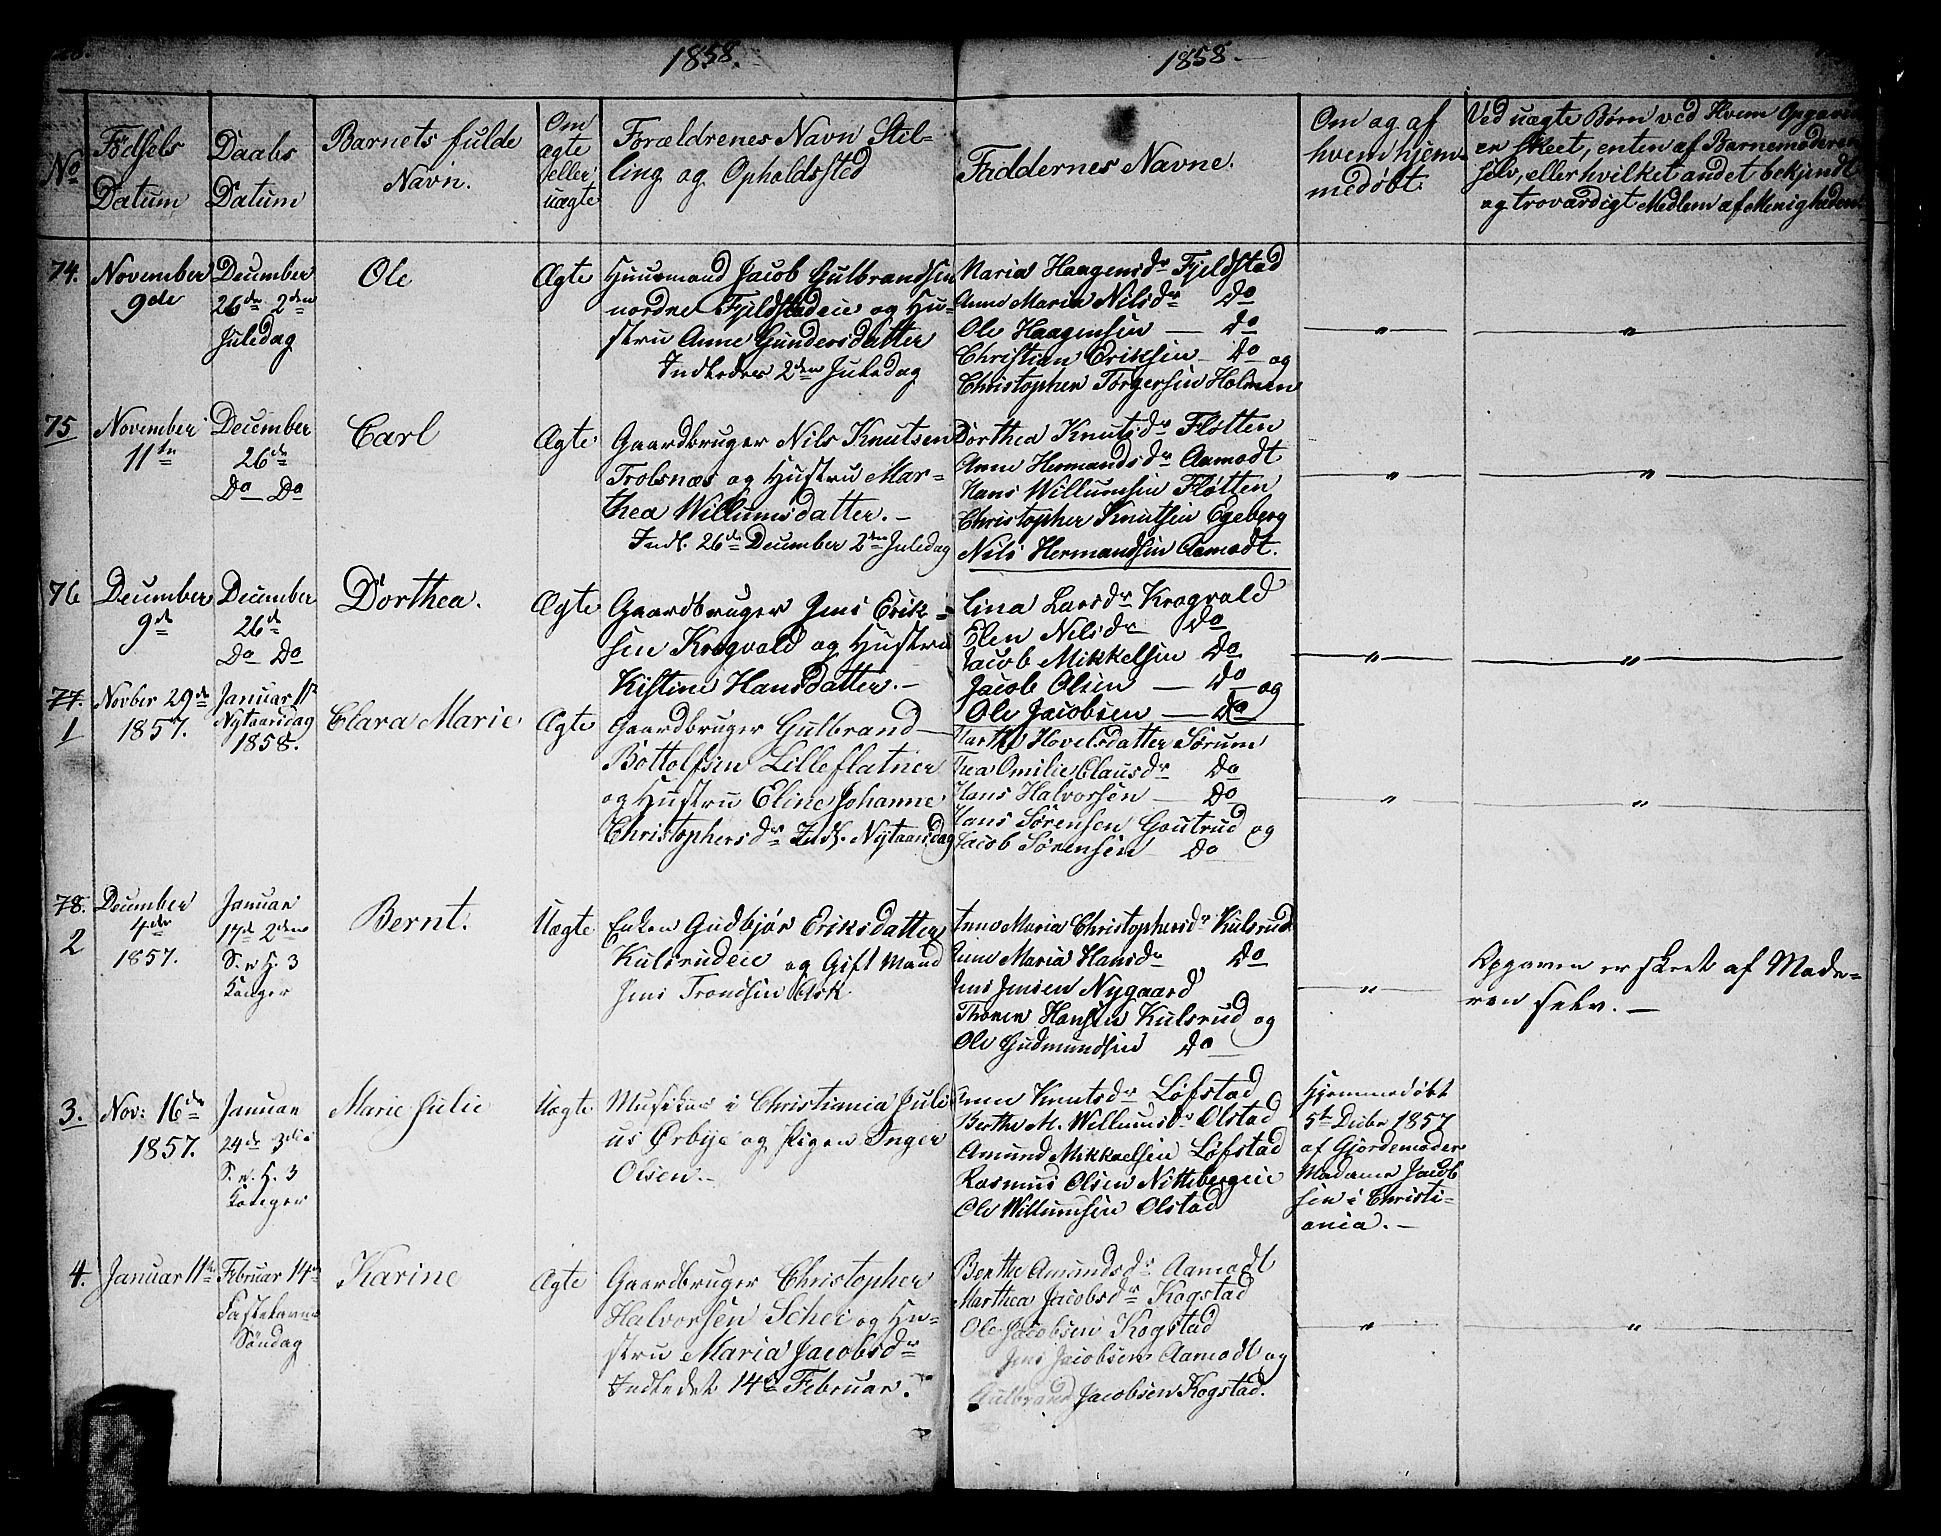 1858.
1858.
No
Fødsels Datum
Daabs Datum
Barnets fulde Navn.
Om ægte eller uægte
Forældrenes Navn Stil-
ling og Opholdssted
Faddernes Navne.
Om og af
hvem hjem-
medøbt.
Ved uægte Børn ved Hvem Opgaven
er skeet, enten af Barnemoderen
selv, eller hvilket andet bekjendt
og troværdigt Medlem af Menigheden.
74.
November
9de
December
26de 2den
Juledag
Ole
Ægte
Huusmand Jacob Gulbrandsen
nordre Fjeldstadeie og Hu-
stru Anne Gundersdatter
Indledes 2den Juledag
Maria Haagensdr Fjeldstad
Anne Maria Nilsdr Do
Ole Haagensen — Do
Christian Eriksen — Do og
Christopher Torgersen Holmen
"
"
75
November
11te
December
26de
Do Do
Carl
Ægte
Gaardbruger Nils Knutsen
Trolsnæs og Hustru Mar-
thea Willumsdatter. —
Indl. 26de December 2den Juledag
Dorthea Knutsdr Fløtten
Anne Hermandsdr Aamodt
Hans Willumsen Fløtten
Christopher Knutsen Egeberg
Nils Hermandsen Aamodt.
"
"
76
December
9de
December
26de
Do Do
Dorthea.
Ægte
Gaardbruger Jens Erik-
sen Krogvold og Hustru
Kistine Hansdatter. —
Lina Larsdr Krogvold
Elen Nilsdr Do
Jacob Mikkelsen Do
Jacob Olsen — Do og
Ole Jacobsen — Do
"
"
77.
1
Novber 29de
1857.
Januar 1ste
Nytaarsdag
1858.
Clara Marie
Ægte
Gaardbruger Gulbrand
Bottolfsen Lilleflatner
og Hustru Eline Johanne
Christophersdr Indl. Nytaarsdag
Marthe Hovelsdatter Sørum
Thea Omilie Clausdr Do
Hans Halvorsen — Do
Hans Sørensen Goutrud og
Jacob Sørensen Do
"
"
78.
2
December
4de
1857.
Januar
17de 2den
S. e H. 3
Konger
Bernt.
Uægte
Enken Gudbjør Eriksdatter
Kulsrudeie og Gift Mand
Jens Trondsen Ask
Anne Maria Christophersdr Kulsrud
Anne Maria Hansdr Do
Jens Jensen Nygaard
Thorer Hansen Kulsrud og
Ole Gudmundsen Do
"
Opgaven er skeet af Mode-
ren selv. —
3.
Nov: 16de
1857.
Januar
24de 3die
S. e. H. 3
Konger
Marie Julie
Uægte
Musikus i Christiania Juli
us Ørbye og Pigen Inger
Olsen. —
Anne Knutsdr Løfstad
Berthe M. Willumsdr Olstad
Amund Mikkelsen Løfstad
Rasmus Olsen Nittebergeie
Ole Willumsen Olstad
Hjemmedøbt
5te Decbr 1857
af Gjordemoder
Madame Jacob
sen i Christi-
ania. —
4.
Januar 11te
Februar 14de
Fastelavns
Søndag
Karine
Ægte
Gaardbruger Christopher
Halvorsen Schei og Hu-
stru Maria Jacobsdr
Indledet 14de Februar.
Berthe Amundsdr Aamodt
Marthea Jacobsdr Kogstad
Ole Jacobsen Kogstad
Jens Jacobsen Aamodt og
Gulbrand Jacobsen Kogstad.
"
"